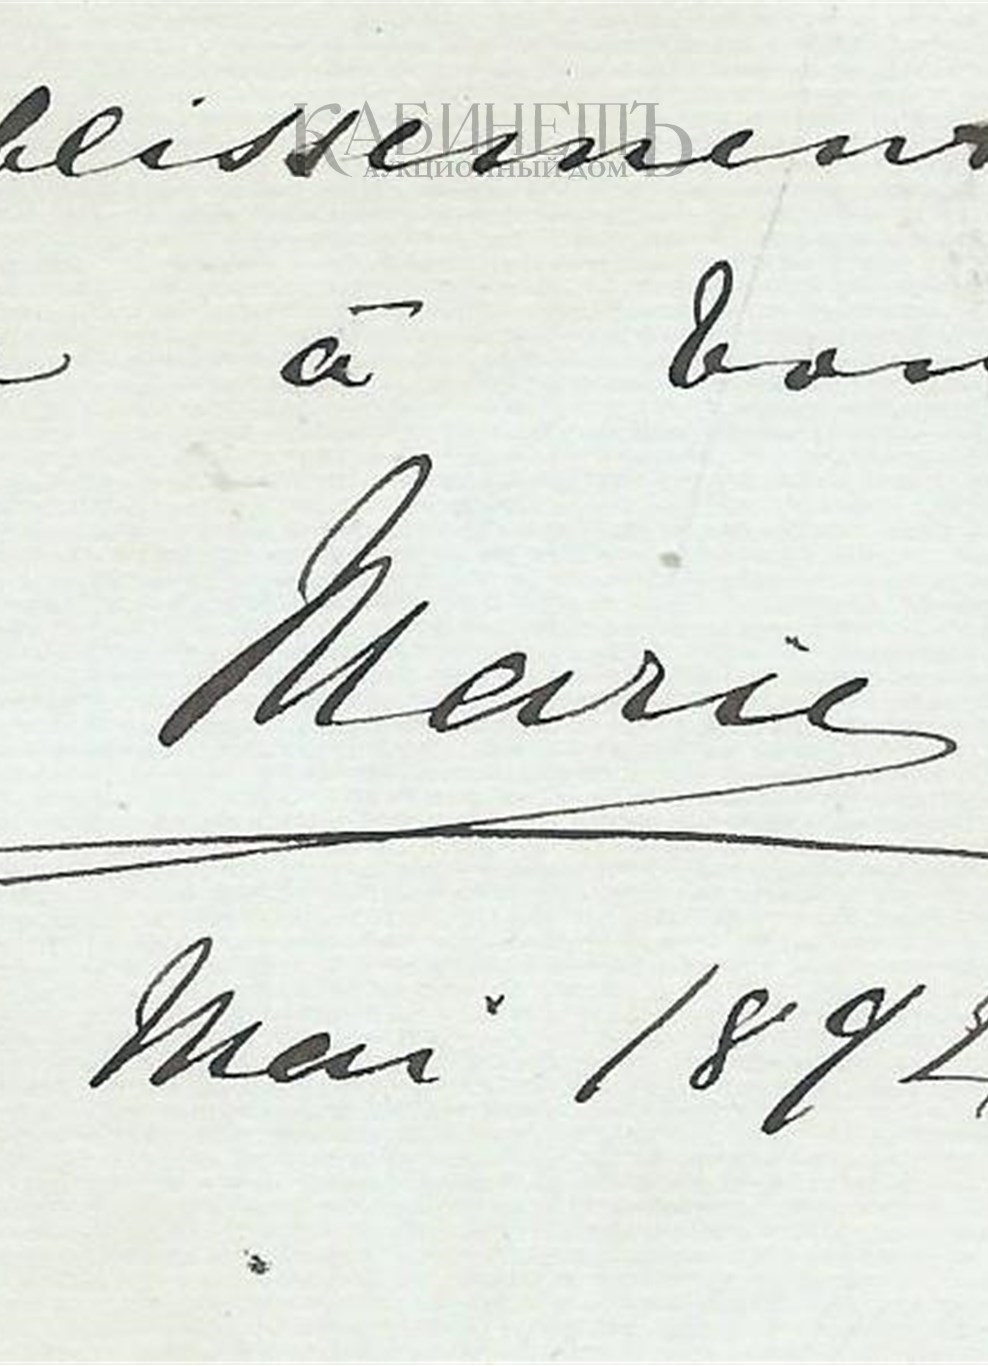 blissement
КАБИНЕТЪ
АУКЦИОННЫЙ ДОМ
à bon
Marie
Mai 1892